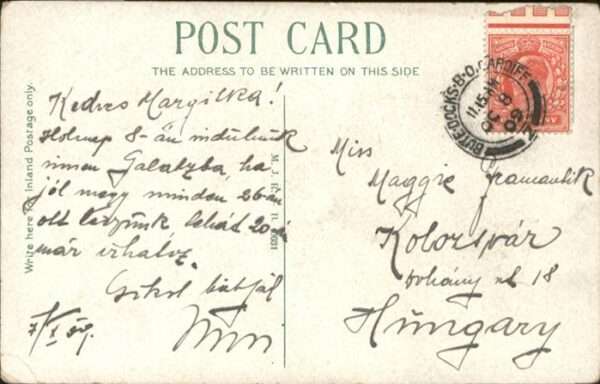 POST CARD
THE ADDRESS TO BE WRITTEN ON THIS SIDE
Write here To Inland Postage only.
Kedves Margitka!
Holnap 8-án indulunk
innen Galatzba, ha
jól megy minden 26-án
ott leszünk tehát 20-án
már irhatsz.
Csókol
BUTE-DOCKS-B.O. CARDIFF
11.15 AM
OC 8
09
Miss
Maggie
Kolozsvár
Dohány u 18
Hungary